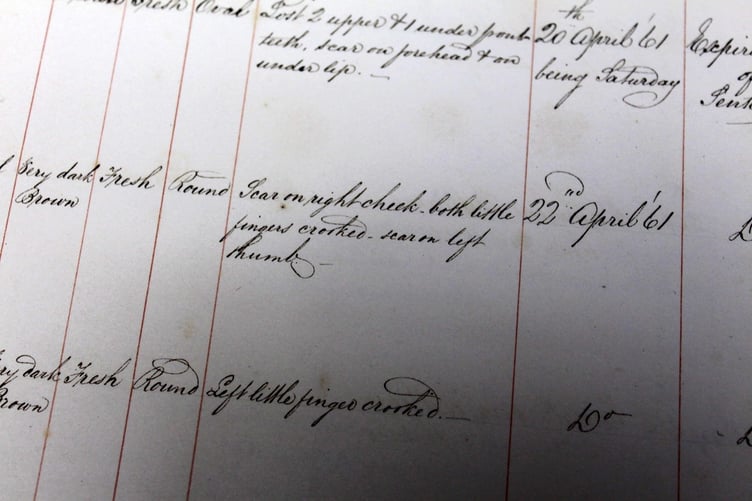 Fresh Oval Lost 2 upper & 1 under front
teeth, scar on forehead & on
under lip. —
20th April '61
being Saturday
of
Very dark Fresh Round Scar on right cheek - both little
Brown fingers crooked - scar on left
thumb —
22nd April '61
dark Fresh Round Left little finger crooked. —
Do